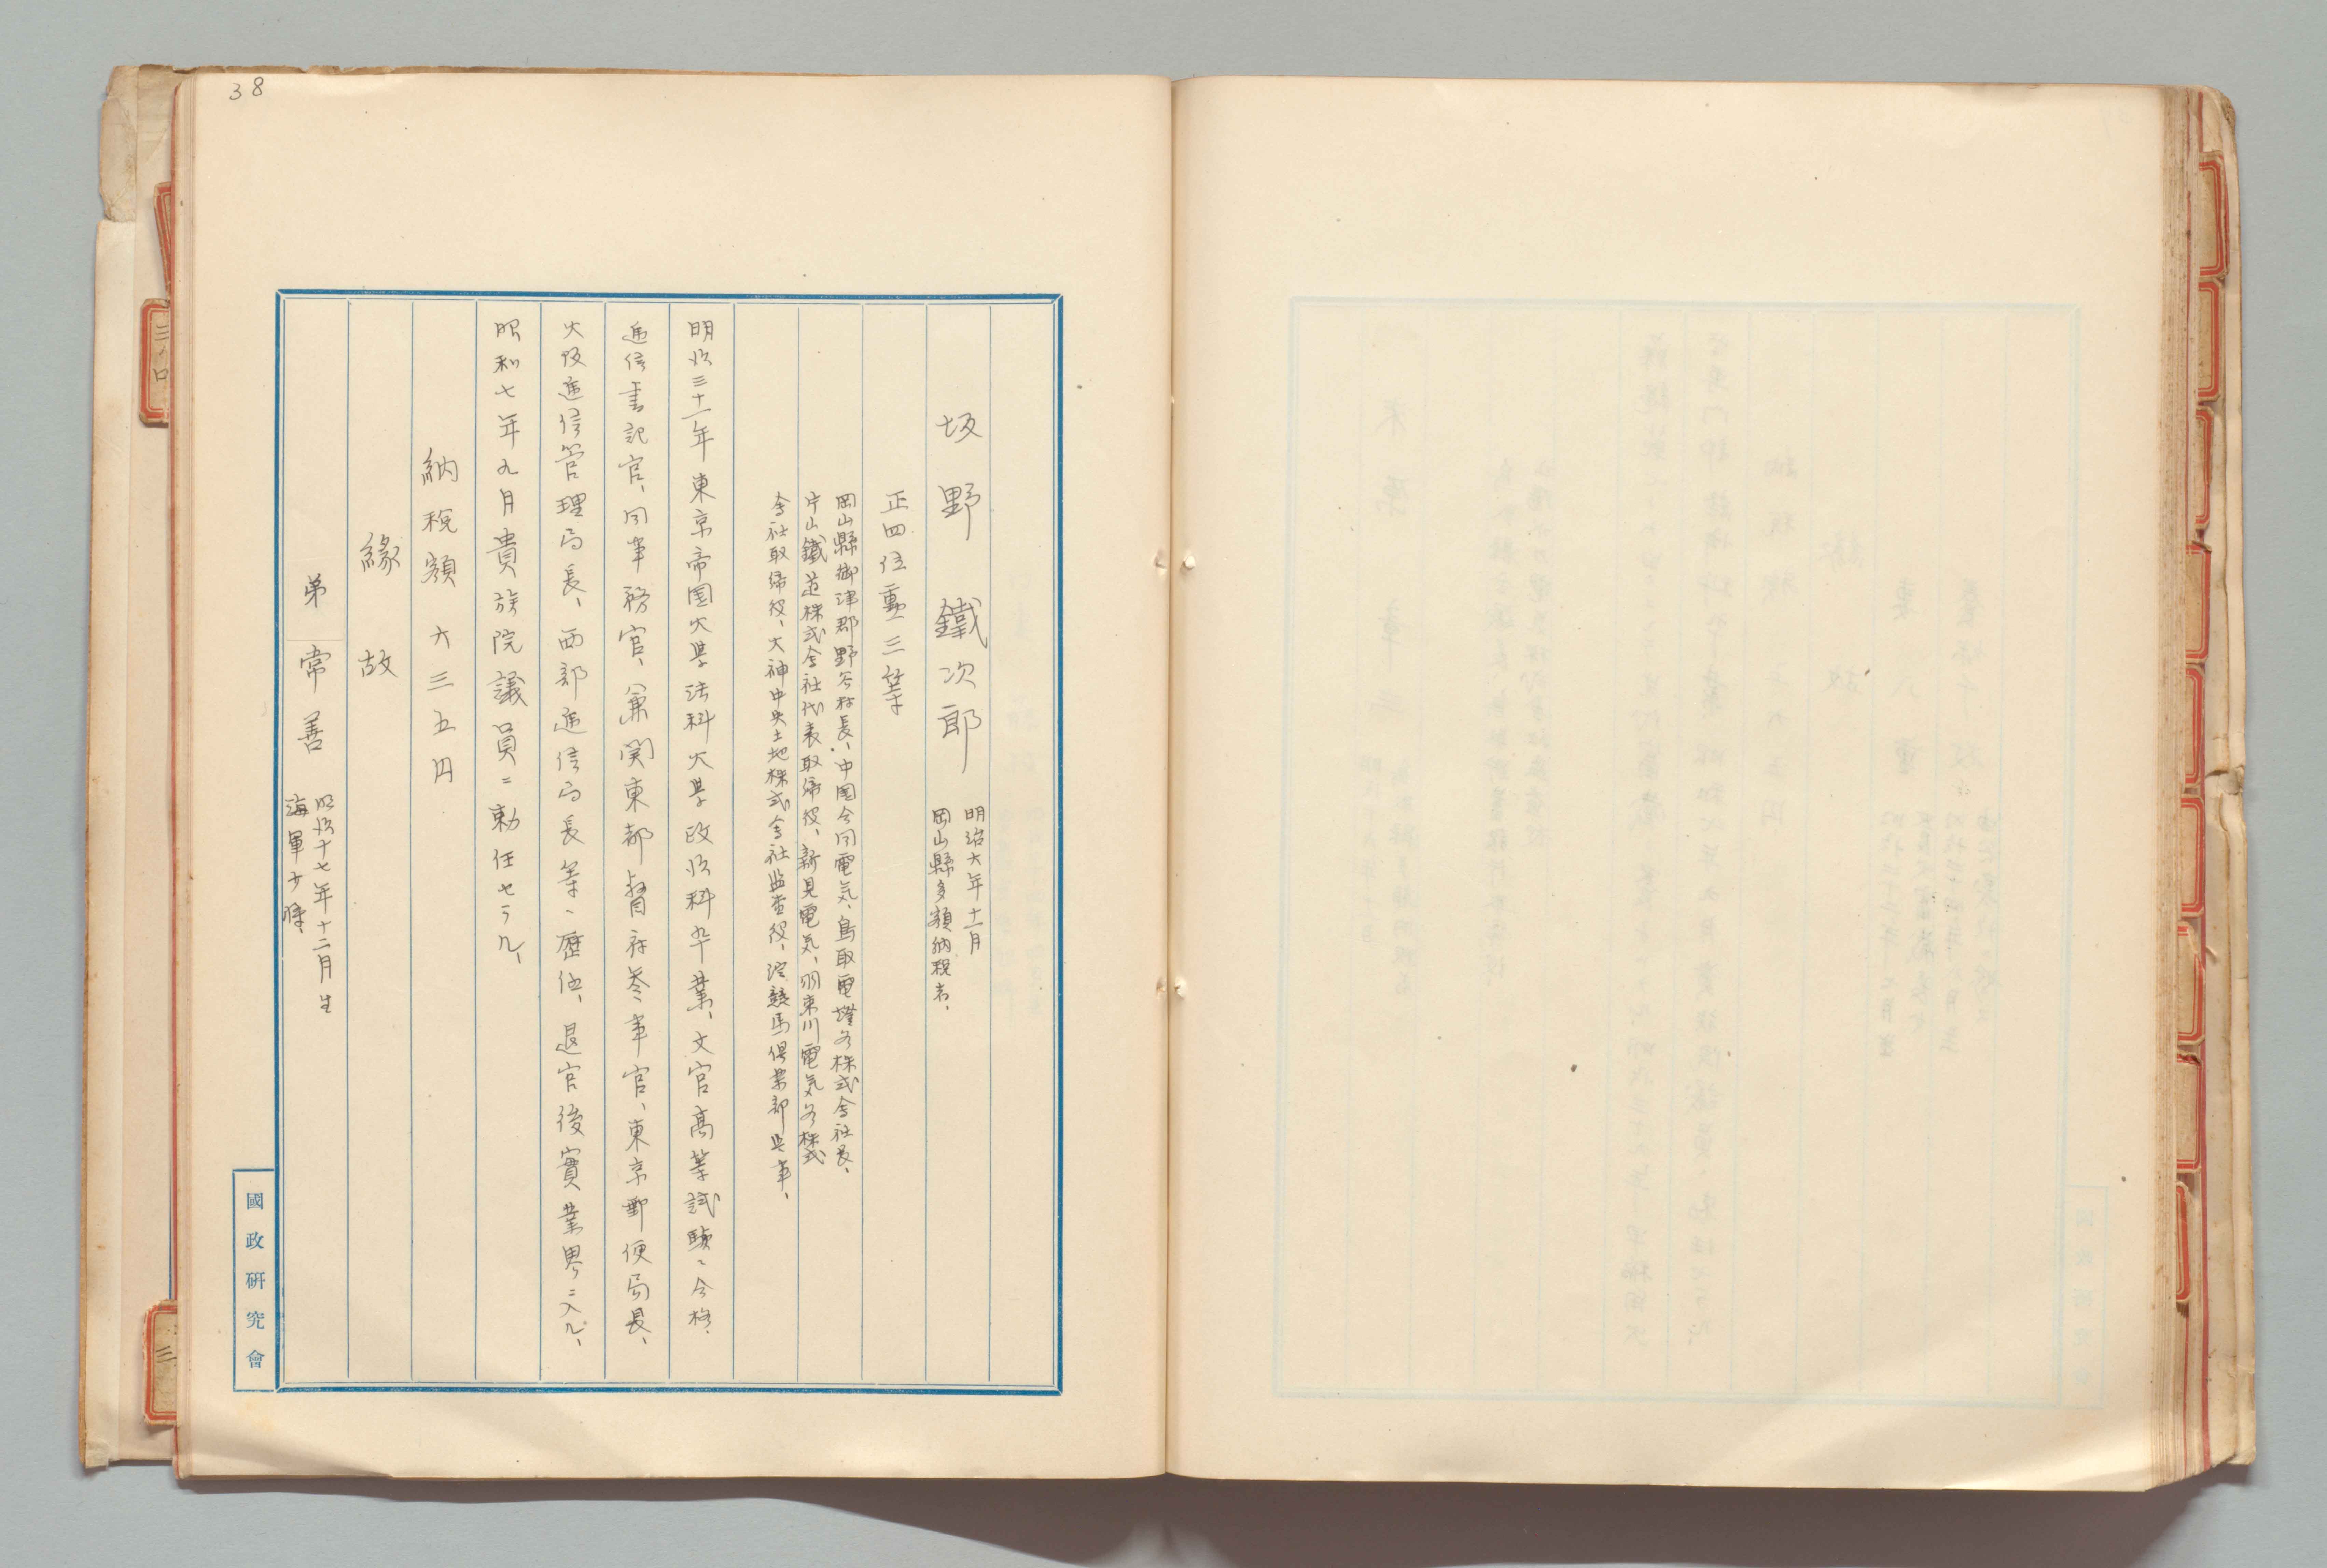 38
坂野鐵次郎
明治六年十一月
岡山縣多額納税者、
正四位勲三等
岡山縣御津郡野谷村長、中国合同電気、鳥取電燈各株式会社長、
片山鐵道株式会社代表取締役、新見電気、羽東川電気各株式
会社取締役、大神中央土地株式会社監査役、淀競馬倶楽部理事、
明治三十一年東京帝国大学法科大学政治科卒業、文官高等試験ニ合格、
逓信書記官、同事務官、兼関東都督府参事官、東京郵便局長、
大阪逓信管理局長、西部逓信局長等ニ歴任、退官後實業界ニ入ル、
昭和七年九月貴族院議員ニ勅任セラル、
納税額 六三五円
緣故
弟 常善
明治十七年十二月生
海軍少将、
國政研究會